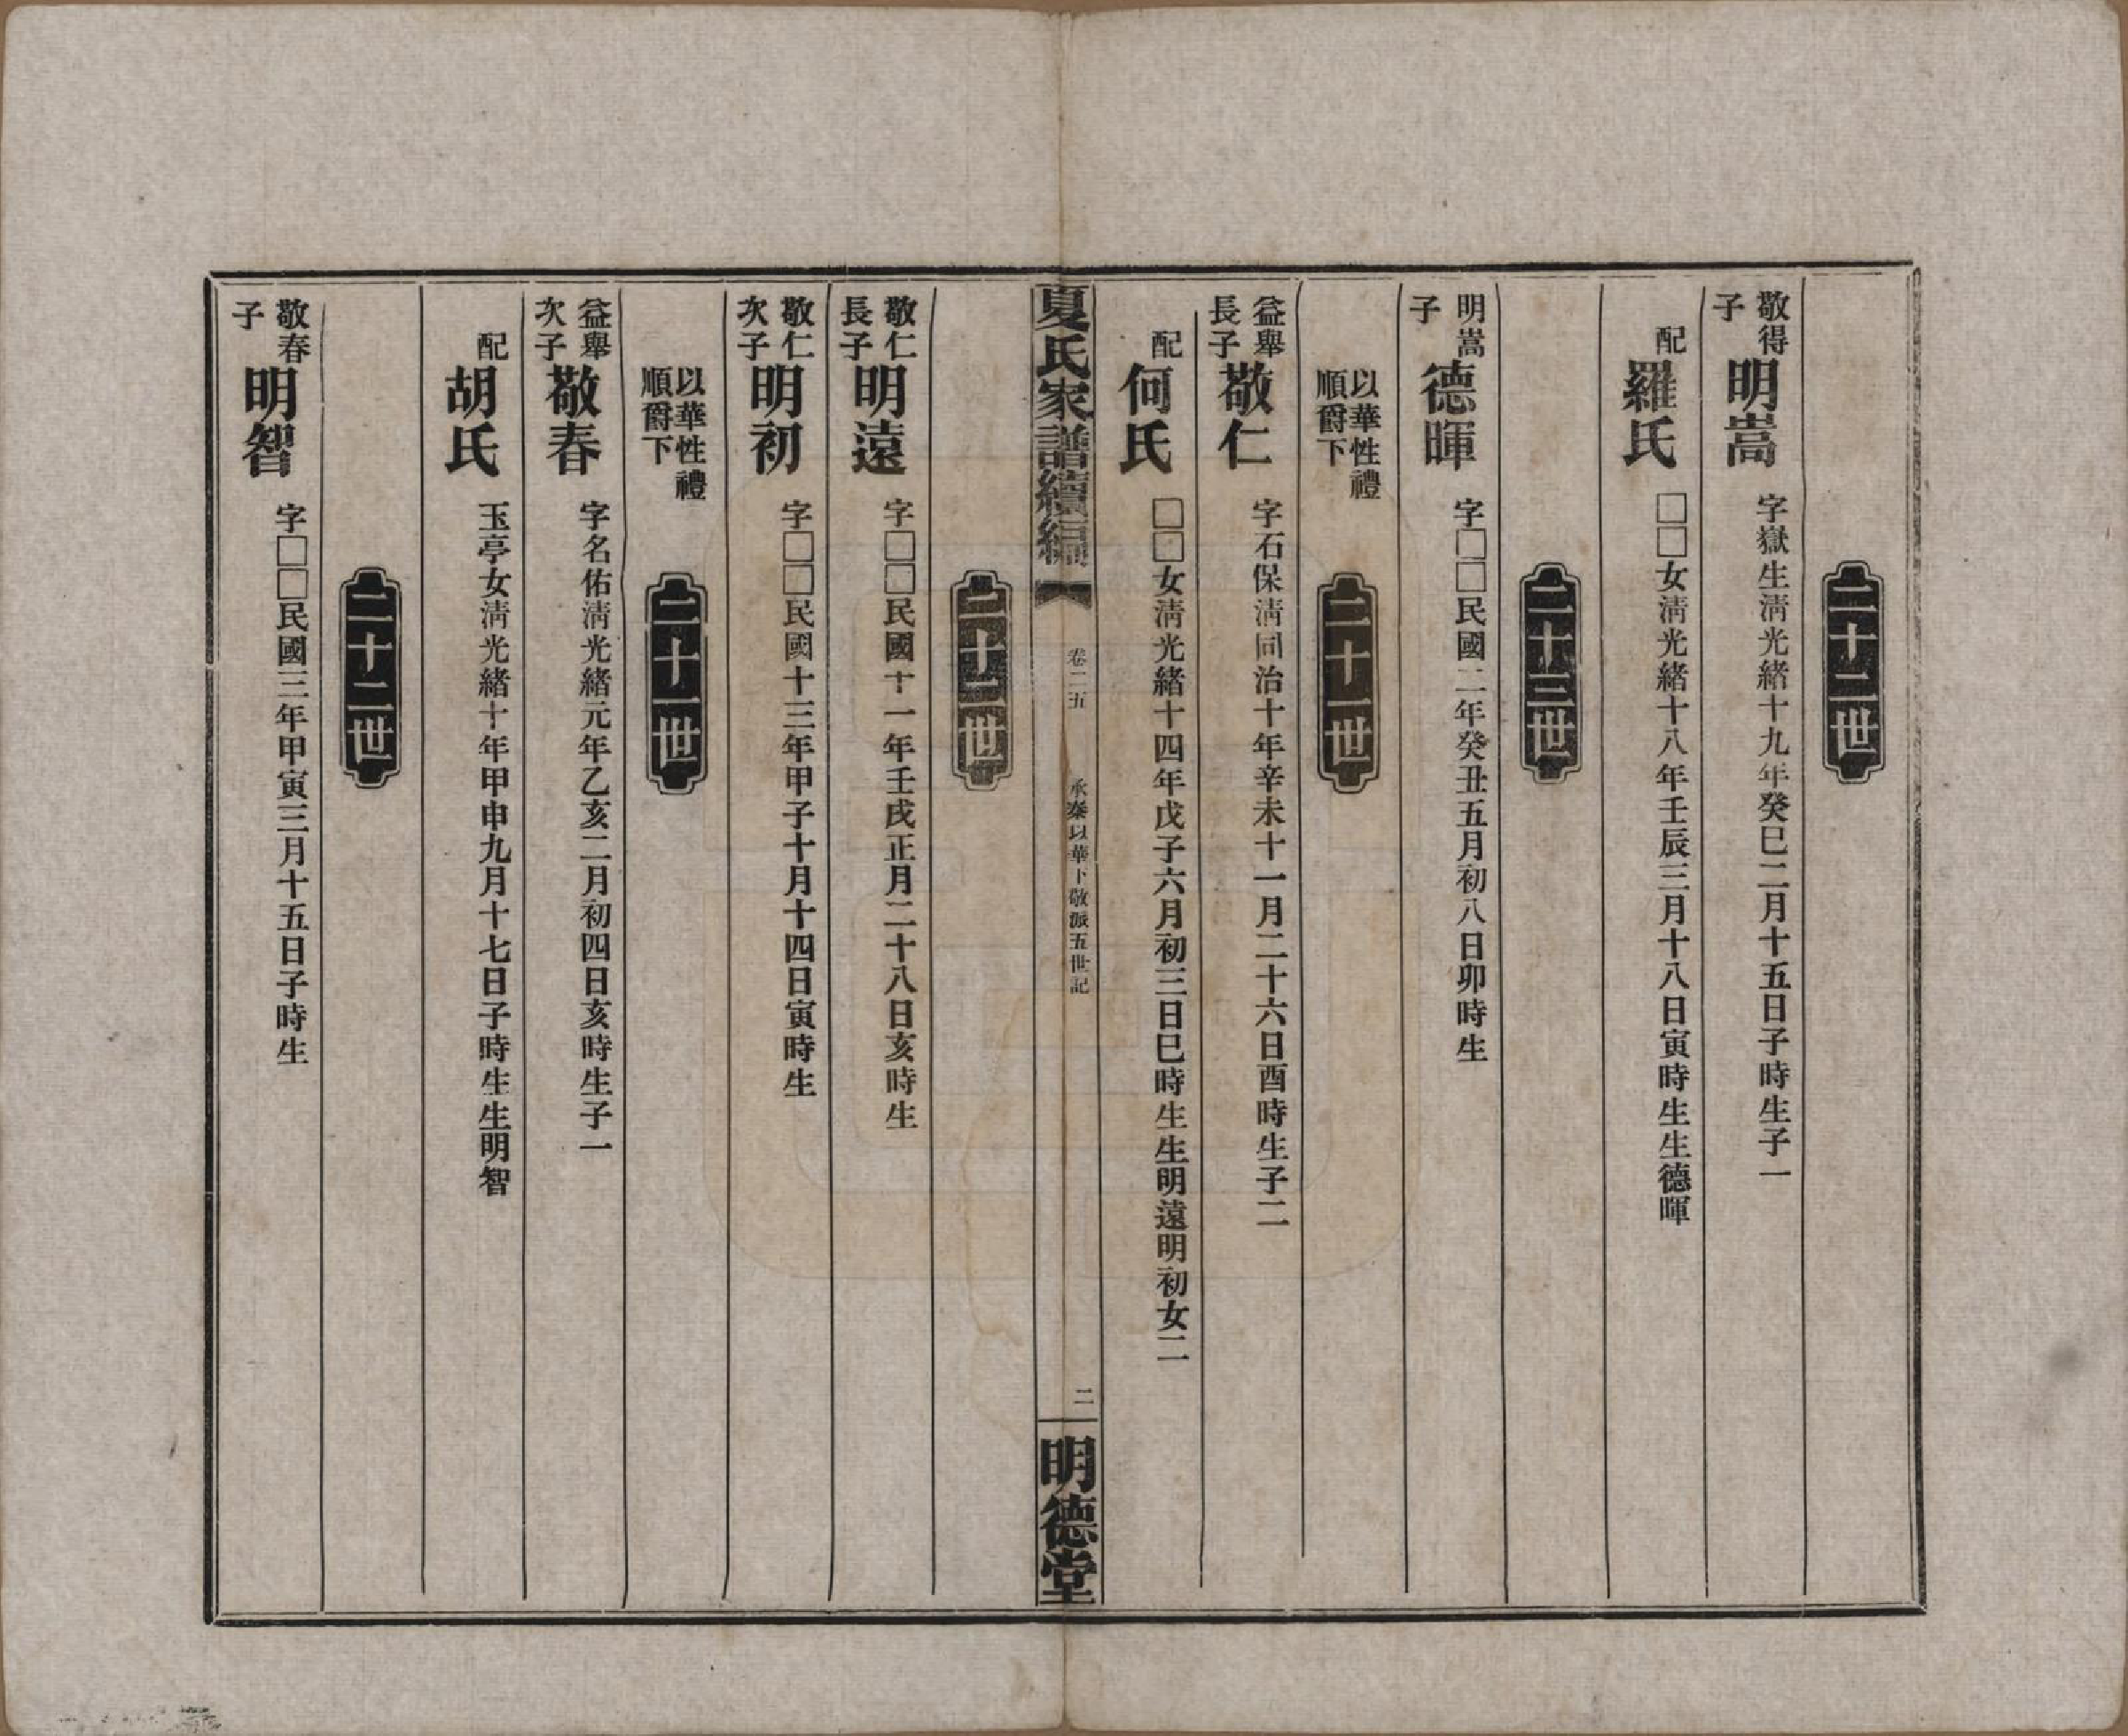 二十二世
敬得子 明嵩 字嶽生淸光緒十九年癸巳二月十五日子時生子一
配 羅氏 □□女淸光緒十八年壬辰三月十八日寅時生生德暉
二十三世
明嵩子 德暉 字□□民國二年癸丑五月初八日卯時生
以華性禮順爵下 二十一世
益舉長子 敬仁 字石保淸同治十年辛未十一月二十六日酉時生子二
配 何氏 □□女淸光緒十四年戊子六月初三日巳時生生明遠明初女二
夏氏家譜續編 卷二五 承泰以華下敬派五世記 二 明德堂
二十二世
敬仁長子 明遠 字□□民國十一年壬戌正月二十八日亥時生
敬仁次子 明初 字□□民國十三年甲子十月十四日寅時生
以華性禮順爵下 二十一世
益舉次子 敬春 字名佑淸光緒元年乙亥二月初四日亥時生子一
配 胡氏 玉亭女淸光緒十年甲申九月十七日子時生生明智
二十二世
敬春子 明智 字□□民國三年甲寅三月十五日子時生